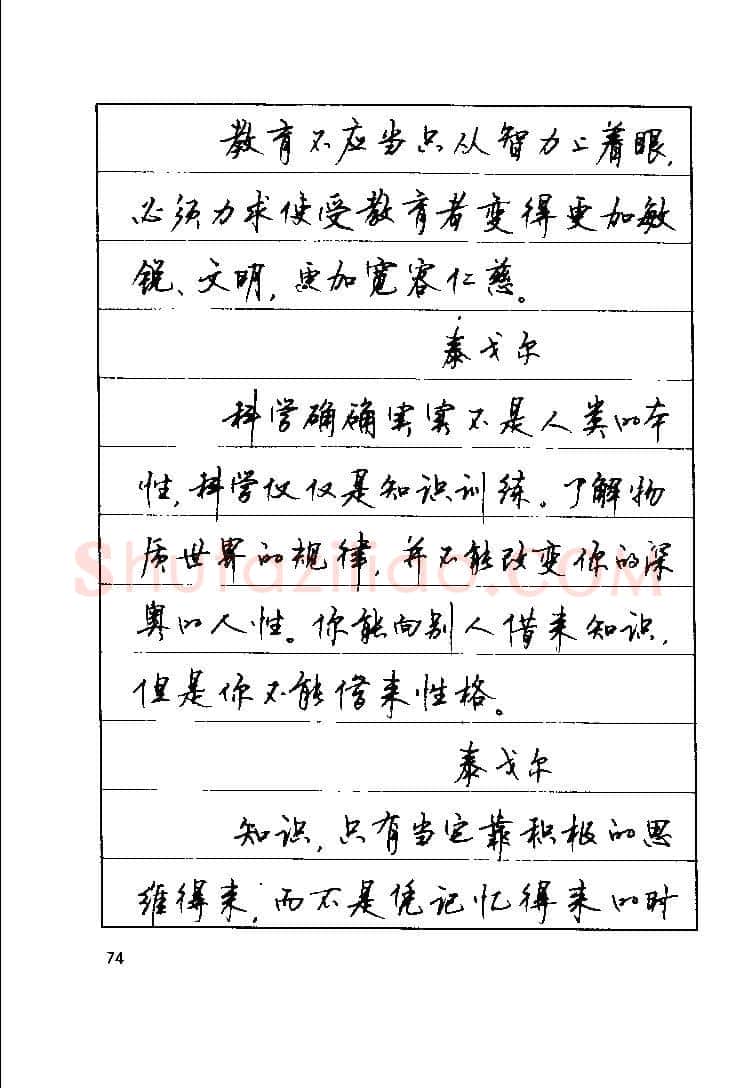 教育不应当只从智力上着眼,
必须力求使受教育者变得更加敏
锐、文明,更加宽容仁慈。
泰戈尔
科学确确实实不是人类的本
性,科学仅仅是知识训练。了解物
质世界的规律,并不能改变你的深
奥的人性。你能向别人借来知识,
但是你不能借来性格。
泰戈尔
知识,只有当它靠积极的思
维得来,而不是凭记忆得来的时
74
Shufaziliao.COM